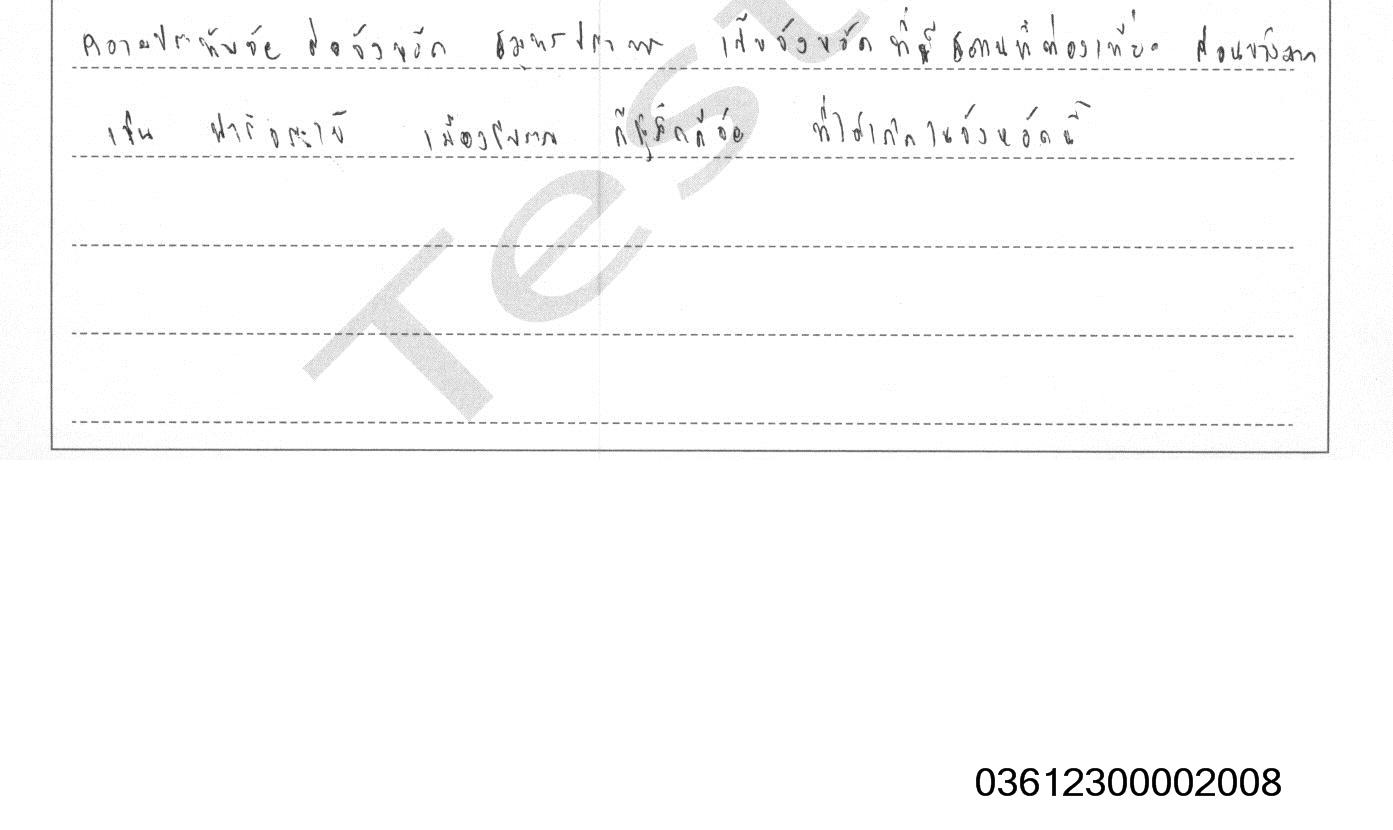 ความประทับใจ ต่อจังหวัด สมุทรปราการ เป็นจังหวัด ที่มี สถานที่ท่องเที่ยว ค่อนข้างมาก
เช่น ฟาร์มจระเข้ เมืองโบราณ ก็รู้สึกดีใจ ที่ได้เกิดในจังหวัดนี้
Test
03612300002008